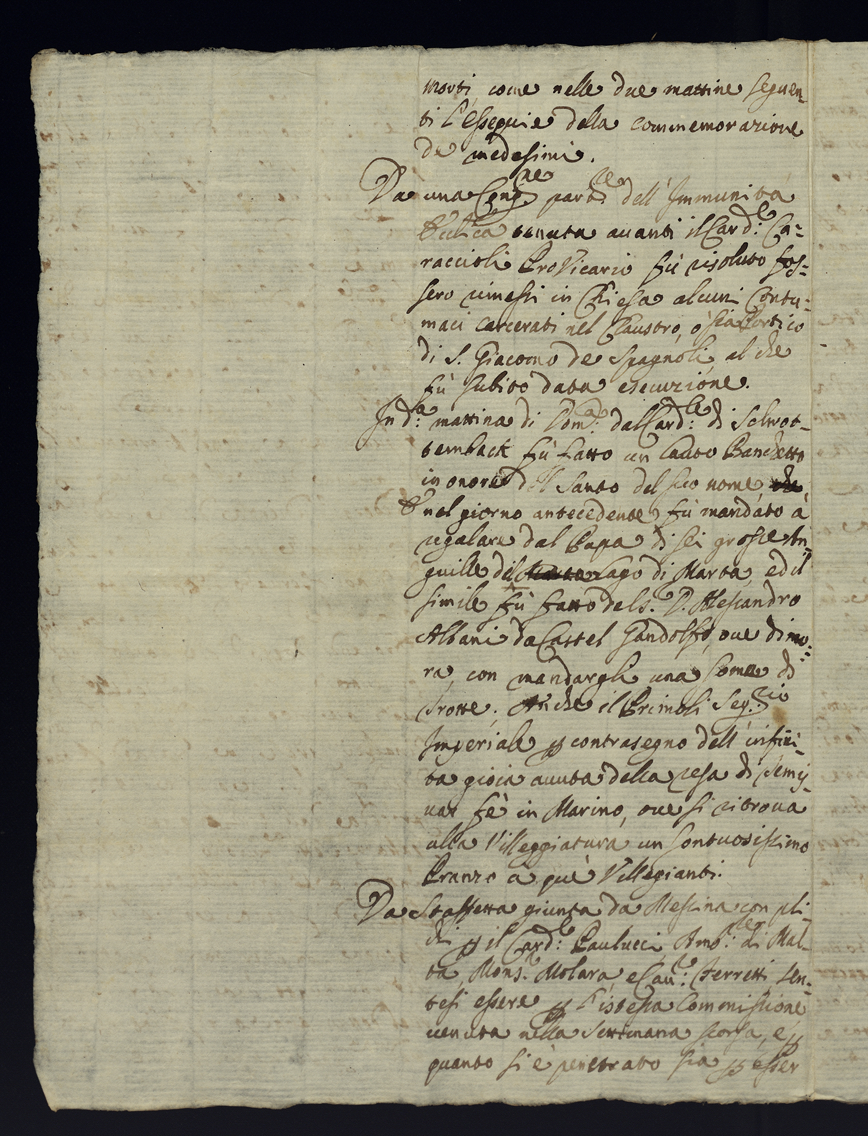 morti come nelle due mattine seguen-
ti l'Essequie della commemorazione
de medesimi.
Da una Cong.ne part.re dell'Immunità
tenuta avanti il Card.le Ca-
raccioli ProVicario fù risoluto fos-
sero rimessi in Chiesa alcuni Contu-
maci carcerati nel Claustro, ò sia Portico
di S. Giacomo de Spagnoli, al che
fù subito data esecuzione.
In d.a mattina di Dom.ca dal Card.le di Schrot-
temback fù fatto un lauto Banchetto
in onore del Santo del suo nome,
e nel giorno antecedente fù mandato à
regalare dal Papa di sei grosse An-
guille del Lago di Marta, ed il
simile fù fatto da S. D. Alessandro
Albani da Castel Gandolfo, ove dimo-
ra, con mandargli una soma di
Trotte. Anche il Primoli Seg.rio
Imperiale p contrasegno dell'infini-
ta gioia avuta della resa di Temis-
var fè in Marino, ove si ritrova
alla Villeggiatura un sontuosissimo
Pranzo à què Villegianti.
Da Staffetta giunta da Messina con pli-
chi p il Card.le Paulucci Amb.re di Mal-
ta, Mons.r Molara, e Cav.re Ferretti, sen-
tesi essere p l'istessa Commissione
venuta nella Settimana scorsa, e p
quanto si è penetrato sia p esser